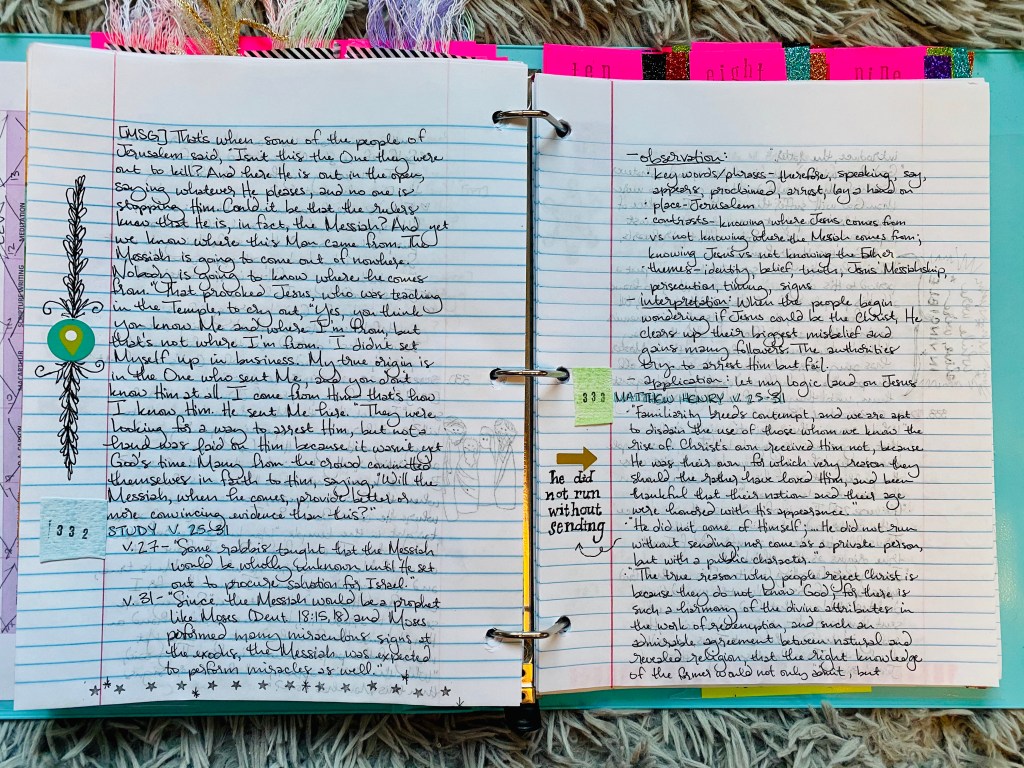 ten
eight
nine
MEDITATION
SCRIPTURE WRITING
[MSG] That's when some of the people of
Jerusalem said, "Isn't this the One they were
out to kill? And here He is out in the open,
saying whatever He pleases, and no one is
stopping Him. Could it be that the rulers
know that He is, in fact, the Messiah? And yet
we know where this Man came from. The
Messiah is going to come out of nowhere.
Nobody is going to know where he comes
from." That provoked Jesus, who was teaching
in the Temple, to cry out, "Yes, you think
you know Me and where I'm from, but
that's not where I'm from. I didn't set
Myself up in business. My true origin is
in the One who sent Me, and you don't
know Him at all. I come from Him - that's how
I know Him. He sent Me here." They were
looking for a way to arrest Him, but not a
hand was laid on Him because it wasn't yet
God's time. Many from the crowd committed
themselves in faith to Him, saying, "Will the
Messiah, when he comes, provide better or
more convincing evidence than this?"
332
STUDY V. 25-31
v. 27 - "Some rabbis taught that the Messiah
would be wholly unknown until He set
out to procure salvation for Israel."
v. 31 - "Since the Messiah would be a prophet
like Moses (Deut 18:15, 18) and Moses
performed many miraculous signs at
the exodus, the Messiah was expected
to perform miracles as well."
- observation:
· key words/phrases - therefore, speaking, say,
appears, proclaimed, arrest, lay a hand on
· place - Jerusalem
· contrasts - knowing where Jesus comes from
vs not knowing where the Messiah comes from;
knowing Jesus vs not knowing the Father
· themes - identity, belief, truth, Jesus' Messiahship,
persecution, timing, signs
- interpretation: When the people begin
wondering if Jesus could be the Christ, He
clears up their biggest misbelief and
gains many followers. The authorities
try to arrest Him but fail.
- application: Let my logic land on Jesus
332
MATTHEW HENRY V. 25-31
· "Familiarity breeds contempt, and we are apt
to disdain the use of those whom we know the
rise of. Christ's own received Him not, because
He was their own, for which very reason they
should the rather have loved Him, and been
thankful that their nation and their age
were honored with His appearance.
he did
not run
without
sending
· "He did not come of Himself;... He did not run
without sending, nor come as a private person,
but with a public character."
· "The true reason why people reject Christ is
because they do not know God; for there is
such a harmony of the divine attributes in
the work of redemption, and such an
admirable agreement between natural and
revealed religion, that the right knowledge
of the former would not only admit, but